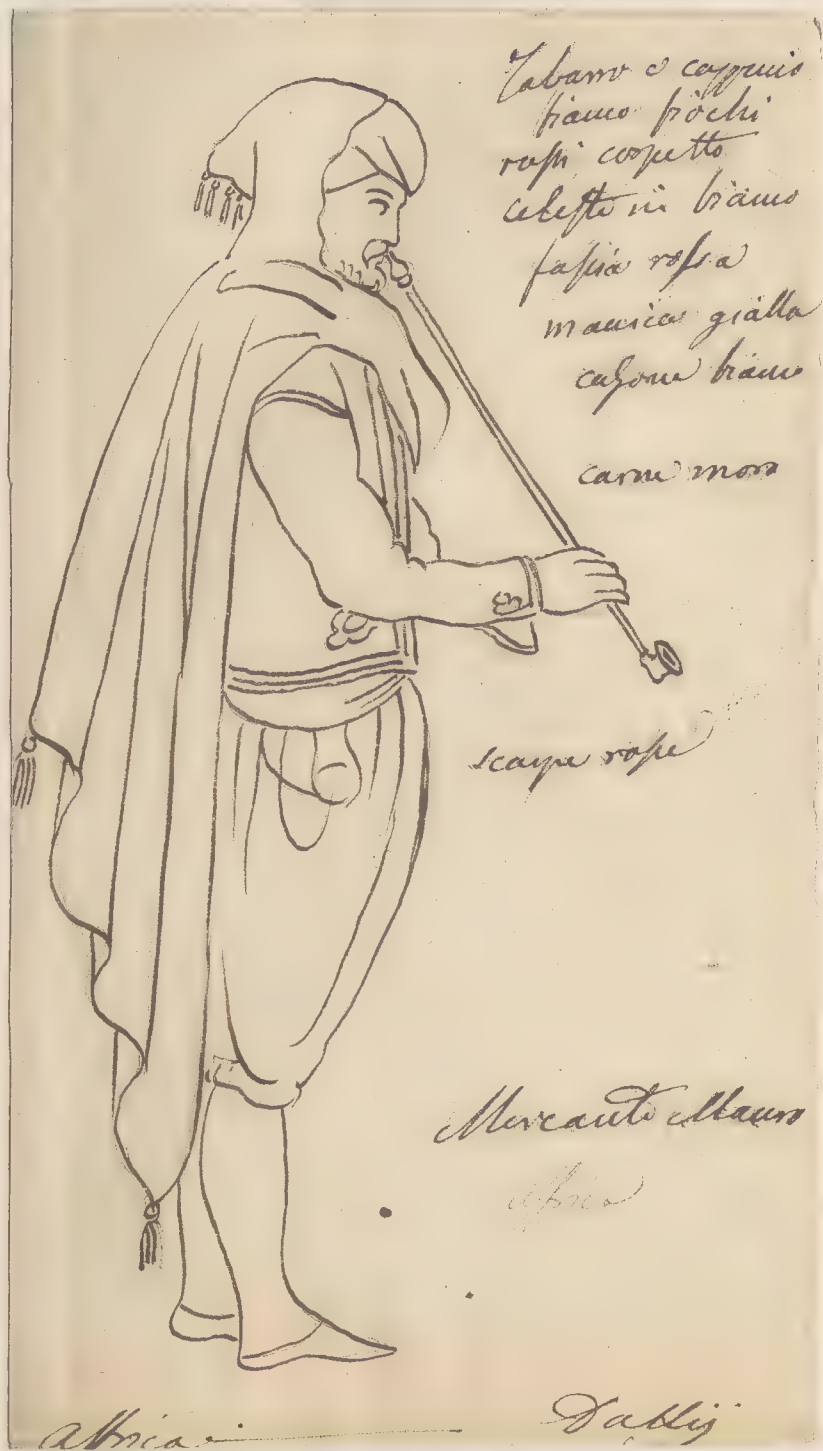 Tabarro e cappucio
bianco fiochi
rossi corpetto
celeste in bianco
fassia rossa
manica gialla
calzone bianco
carne mora
scarpe rosse
Mercante Mauro
Affrica